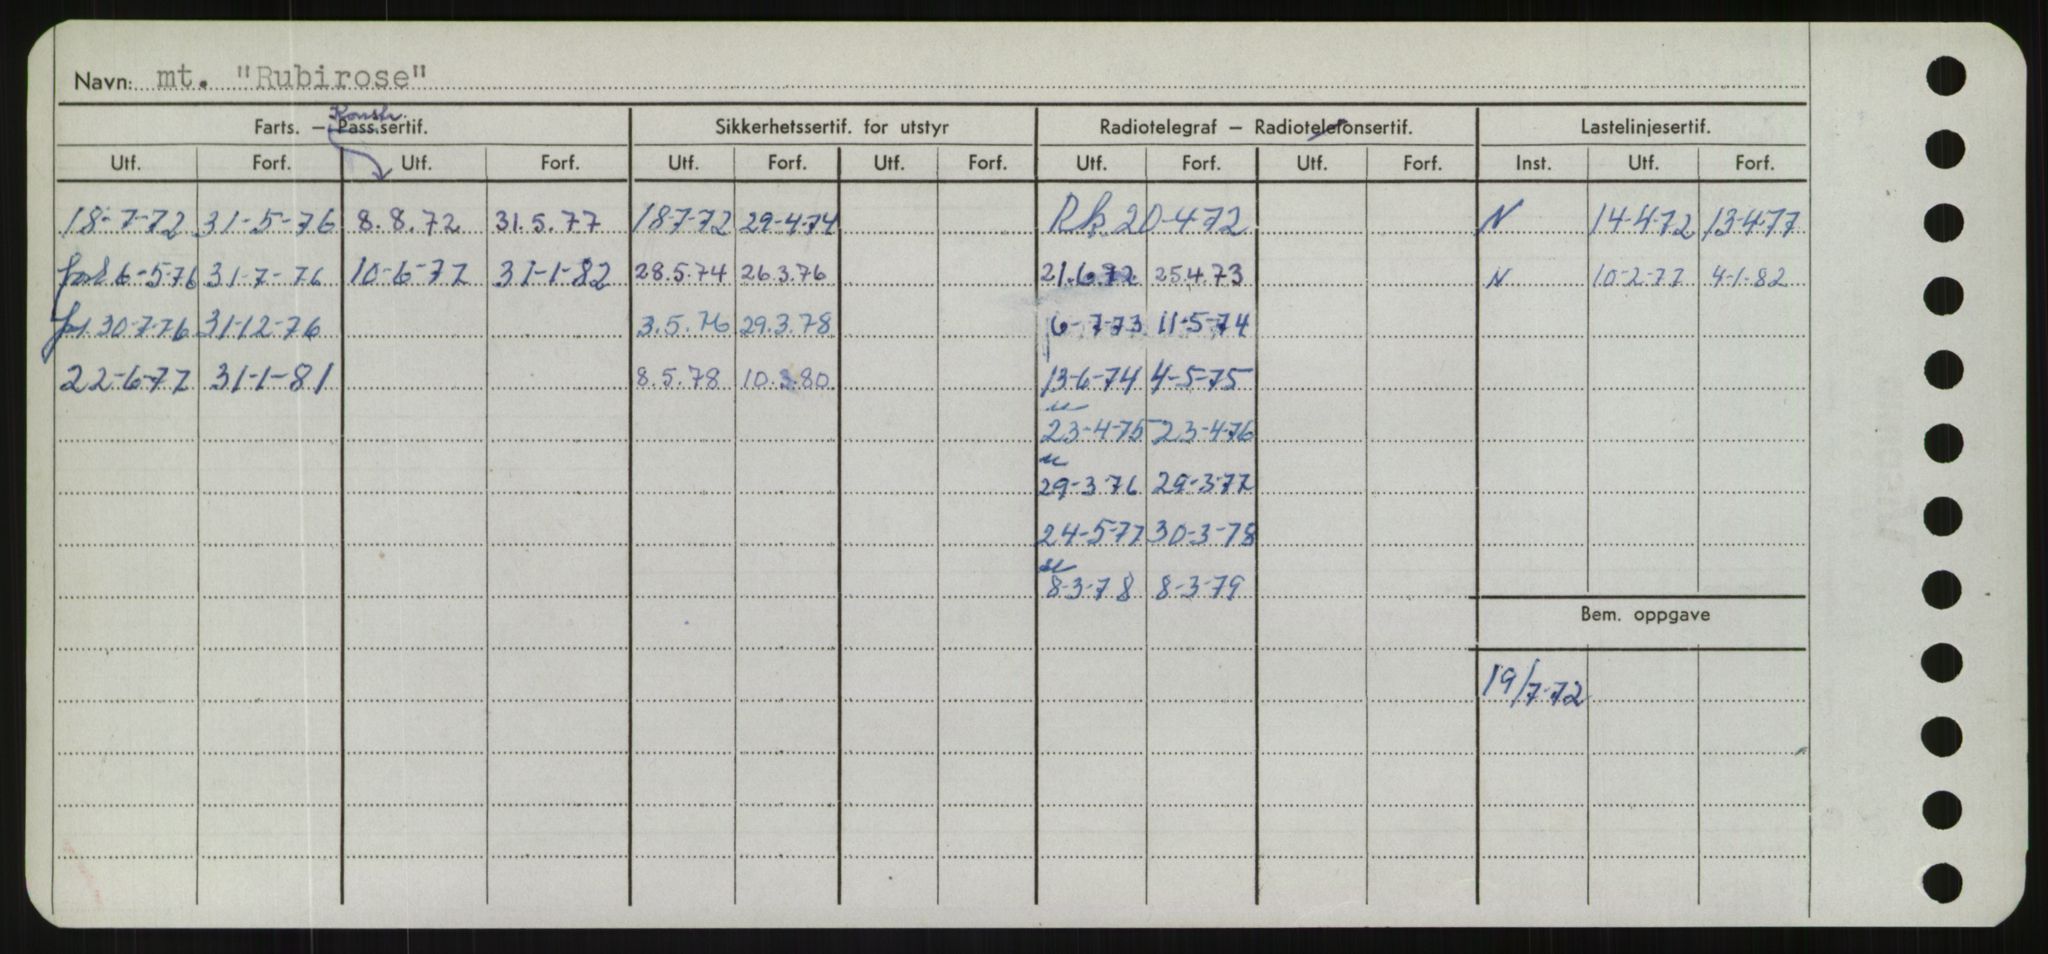 Navn: mt. "Rubirose"
Konstr.
Farts. – Pass.sertif. Sikkerhetssertif. for utstyr Radiotelegraf – Radiotelefonsertif. Lastelinjesertif.
Utf. Forf. Utf. Forf. Utf. Forf. Utf. Forf. Utf. Forf. Utf. Forf. Inst. Utf. Forf.
18-7-72 31-5-76 8.8.72 31.5.77 18-7-72 29-4-74 Rk. 20-4-72 N 14-4-72 13-4-77
forl 6-5-76 31-7-76 10-6-77 31-1-82 28.5.74 26.3.76 21.6.72 25.4.73 N 10-2-77 4-1-82
fl. 30-7-76 31-12-76 3.5.76 29.3.78 6-7-73 11-5-74
22-6-77 31-1-81 8.5.78 10.3.80 13-6-74 4-5-75
23-4-75 23-4-76
29-3-76 29-3-77
24-5-77 30-3-78
8-3-78 8-3-79
Bem. oppgave
19/7-72